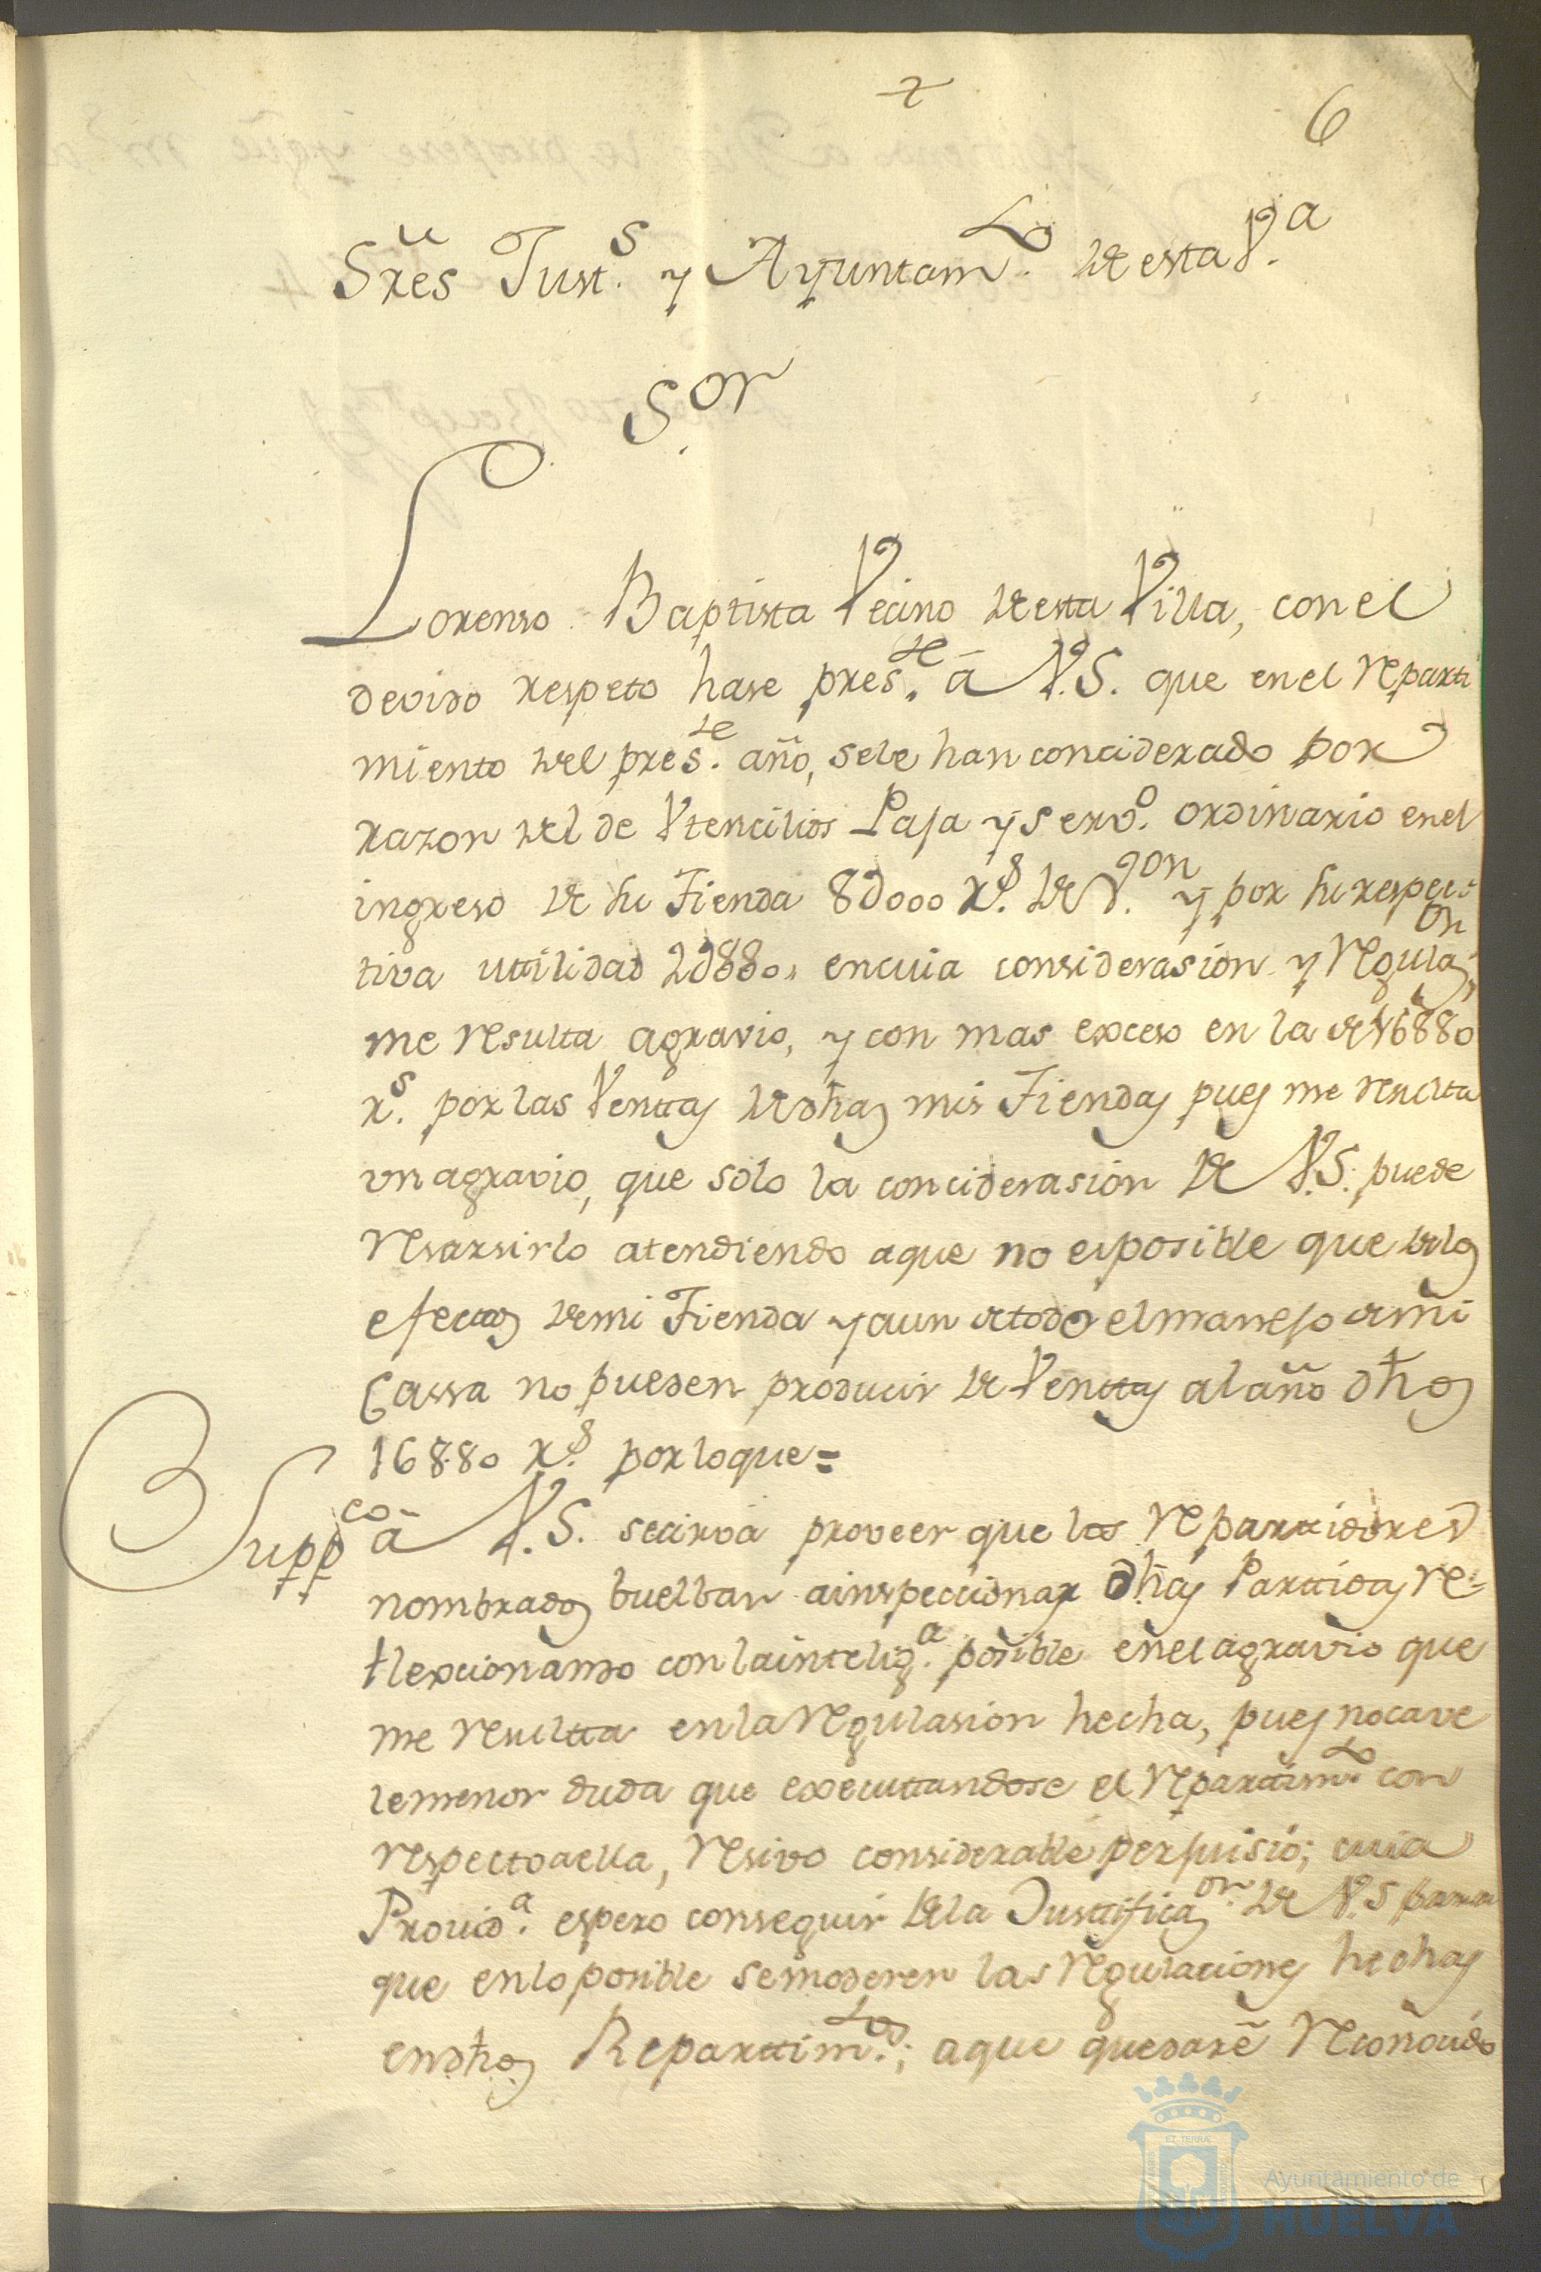 6
Sres Just.s y Ayuntam.to de esta V.a
S.or
Lorenso Baptista Vecino de esta Villa, con el
devido respeto hase pres.te â V.S. que en el reparti
miento del pres.te año, sele han conciderado por
razon del de Vtencilios Paja y serv.o ordinario en el
ingreso de su Tienda 8d000 r.s de V.on y por su respec
tiva utilidad 2d880, en cuia considerasion y regulaz.on
me resulta agravio, y con mas exceso en la de 16880
r.s por las Venttas de dhas mis Tiendas pues me resulta
vn agravio, que solo la conciderasion de V.S. puede
resarsirlo atendiendo aque no es posible que de los
efectos de mi Tienda y aun de todo el manejo de mi
Cassa no pueden producir de Venttas al año dhos
16880 r.s por loque=
Supp.co â V.S. secirva proveer que los reparttidores
nombrados buelban ainspeccionar dhas Parttidas re-
flexcionando con la intelig.a posible en el agravio que
me resultta en la regulasion hecha, pues no cave
le menor duda que executtandose el reparttim.to con
respecto aella, resivo considerable perjuisio; cuia
Provid.a espero conseguir de la Justtificaz.on de V.S para
que en lo posible se moderen las regulaciones hechas
en dhos Reparttim.tos; aque quedarê reconocido
EL TERRAE
Ayuntamiento de
HUELVA